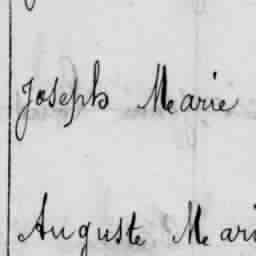 Joseph Marie
Auguste Mari